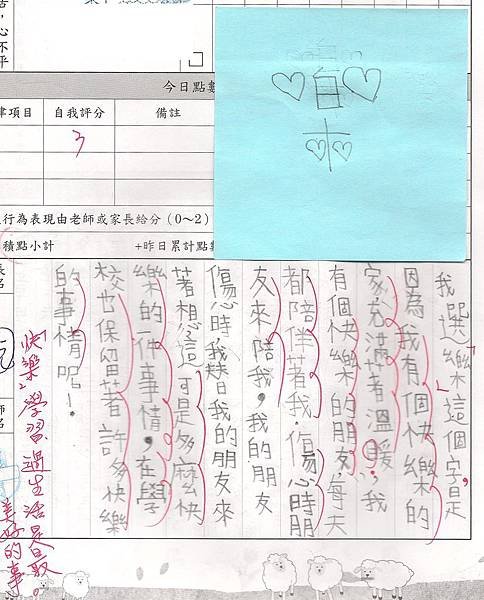 心不平
今日點數
自我評分
備註
項目
3
行為表現由老師或家長給分（0～2）
積點小計
+昨日累計點數
我選樂這個字是
因為我有個快樂的
家充滿著溫暖，我
有個快樂的朋友每天
都陪伴著我，傷心時朋
友來陪我，我的朋友
傷心時我替我的朋友來
著想這可是多麼快
樂的一件事情，在學
校也保留著許多快樂
的事情呢！
「快樂」學習過生活是最
美好的事。